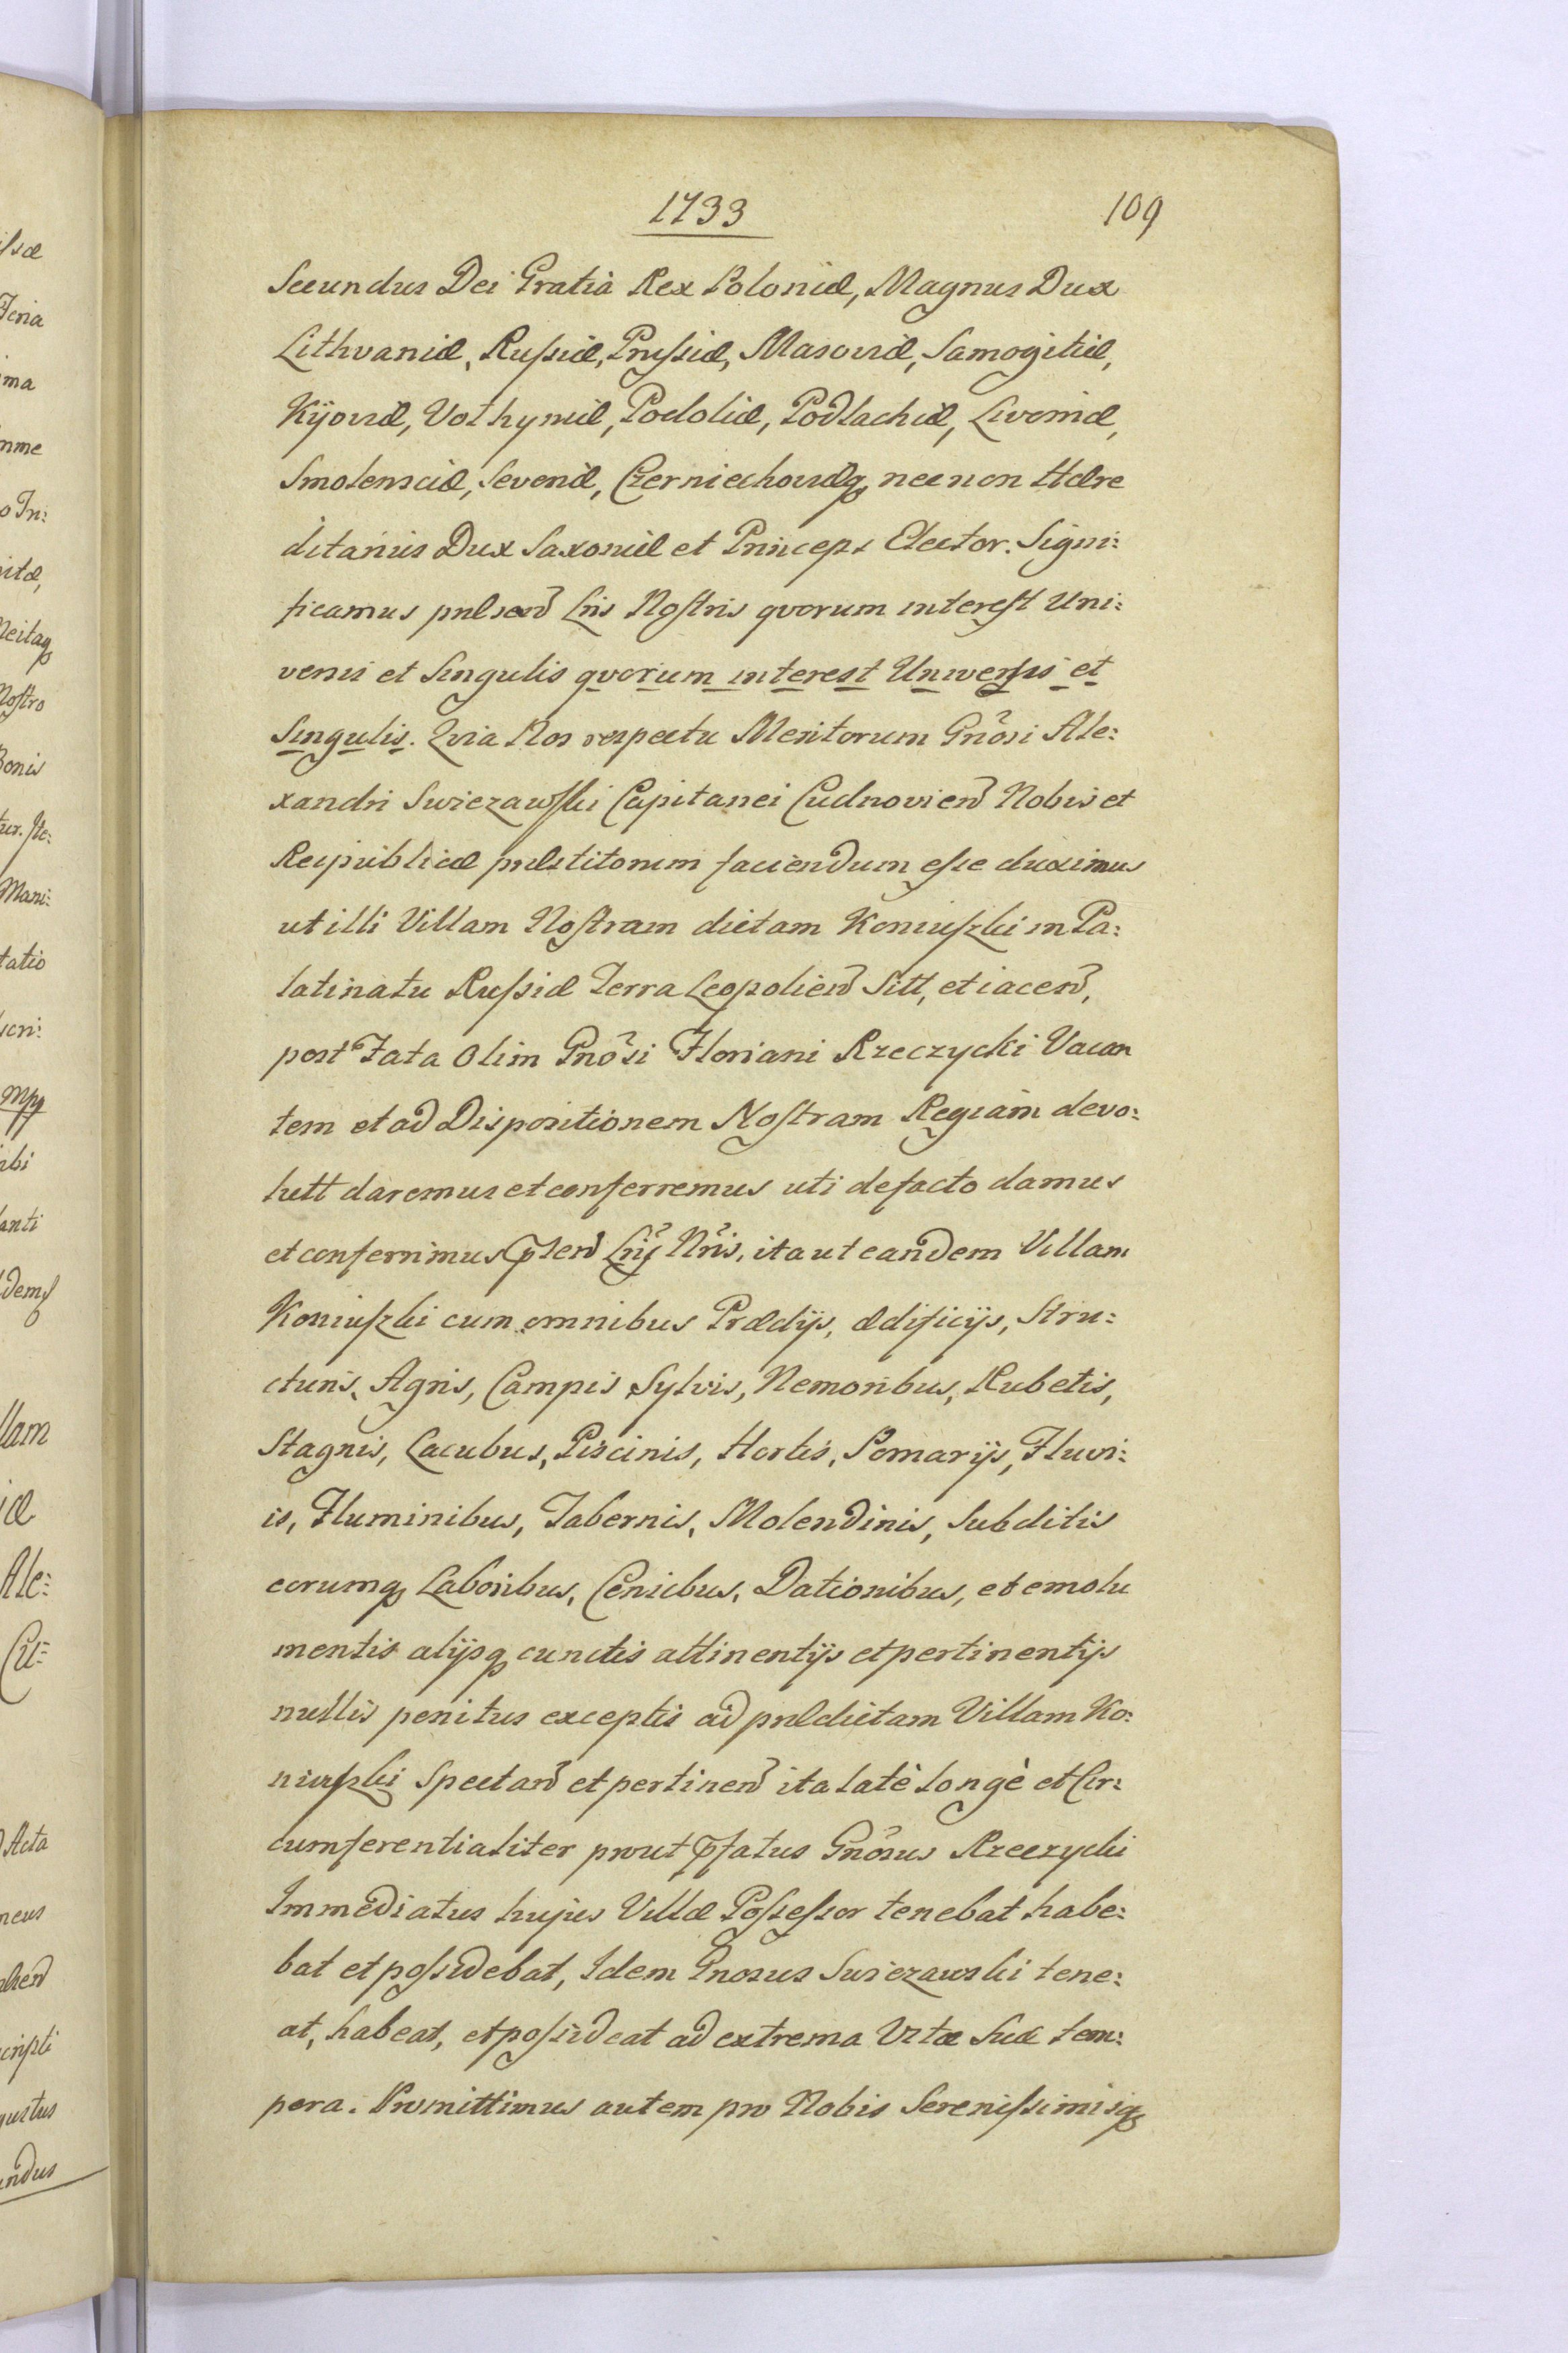 1733
109
Secundus Dei Gratià Rex Poloniæ, Magnus Dux
Lithvaniæ, Rußiæ, Prußiæ, Masoviæ, Samogitiæ,
Kijoviæ, Volhyniæ, Podoliæ, Podlachiæ, Livoniæ,
Smolensciæ, Severiæ, Czerniechoviæq nec non Hære
ditarius Dux Saxoniæ et Princeps Elector. Signi:
ficamus præsen Lris Nostris qvorum interest Uni:
versis et Singulis qvorum interest Universis et
Singulis. Qvia Nos respectu Meritorum Gnosi Ale:
xandri Swiezawski Capitanei Cudnovien Nobis et
Reipublicæ præstitorum faciendum eße duximus
ut illi Villam Nostram dictam Koniuszki in Pa:
latinatu Rußiæ Terra Leopolien Sitt, et iacen,
post Fata Olim Gnosi Floriani Rzeczycki Vacan
tem et ad Dispositionem Nostram Regiam devo:
lutt daremus et conferremus uti defacto damus
et conferrimus psen Lrij Nris, ita ut eandem Villam
Koniuszki cum omnibus Prædijs, ædificijs, Stru:
cturis, Agris, Campis Sylvis, Nemoribus, Rubetis,
Stagnis, Lacubus, Piscinis, Hortis, Pomarijs, Fluvi:
is, Fluminibus, Tabernis, Molendinis, Subditis
eorumq Laboribus, Censibus, Dationibus, et emolu
mentis alijsq cunctis attinentijs et pertinentijs
nullis penitus exceptis ad prædictam Villam Ko:
niuszki Spectan et pertinen ita latè longè et Cir:
cumferentialiter prout pfatus Gnosus Rzeczycki
Immediatus hujus Villæ Poßeßor tenebat habe:
bat et poßidebat, Idem Gnosus Swiezawski tene:
at, habeat, et poßideat ad extrema Vitæ Suæ tem:
pora. Promittimus autem pro Nobis Serenißimisq